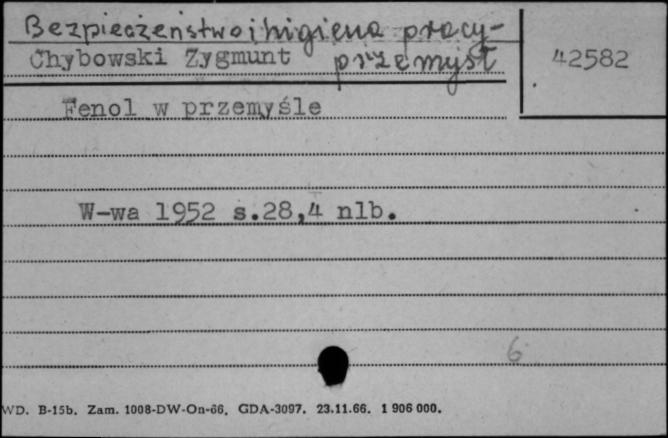 Bezpieczeństwo i higiena pracy-
przemysł
Chybowski Zygmunt
42582
Fenol w przemyśle
W-wa 1952 s.28,4 nlb.
6
WD. B-15b. Zam. 1008-DW-On-66. GDA-3097. 23.11.66. 1 906 000.